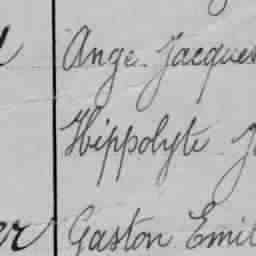 Ange Jacques
Hippolyte
er Gaston Emil